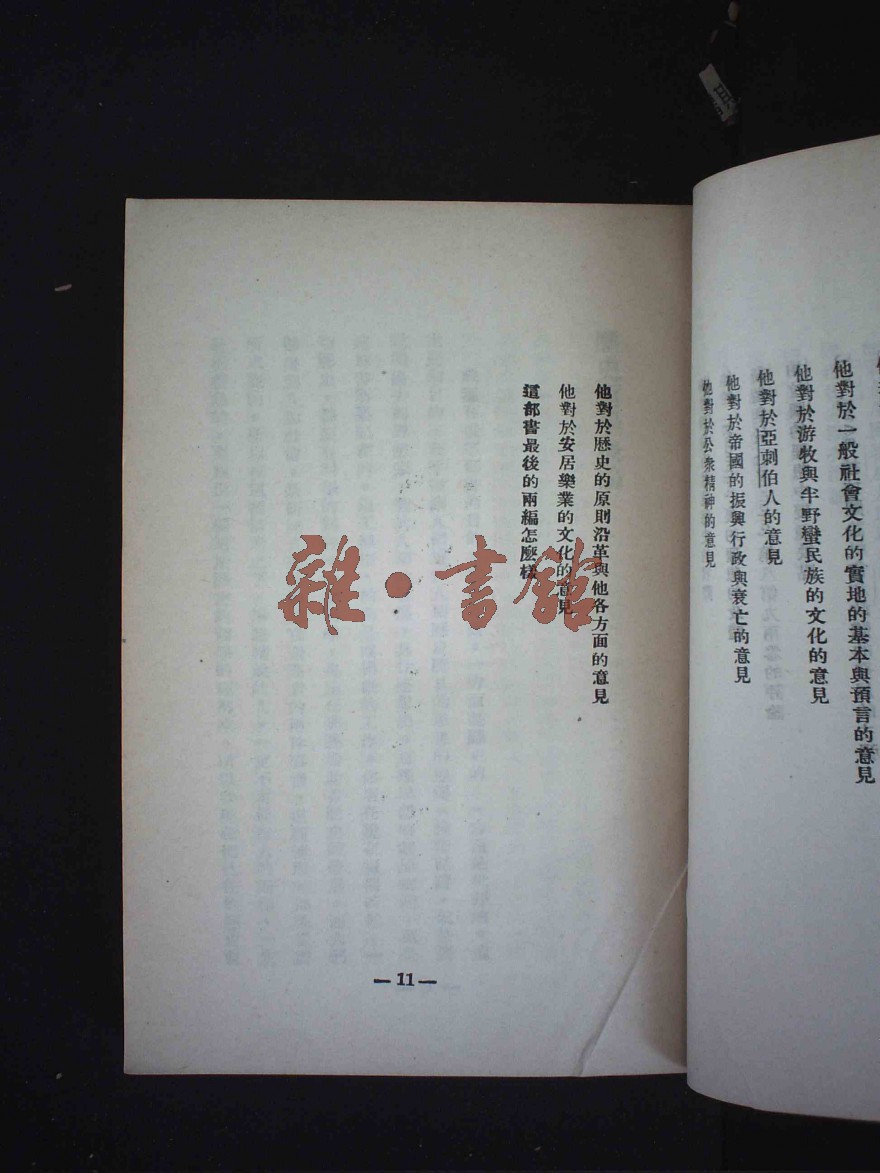 他對於一般社會文化的實地的基本與預言的意見
他對於游牧與半野蠻民族的文化的意見
他對於亞剌伯人的意見
他對於帝國的振興行政與衰亡的意見
他對於公衆精神的意見
他對於歷史的原則沿革與他各方面的意見
他對於安居樂業的文化的意見
這部書最後的兩編怎麽樣
雜·書館
— 11 —